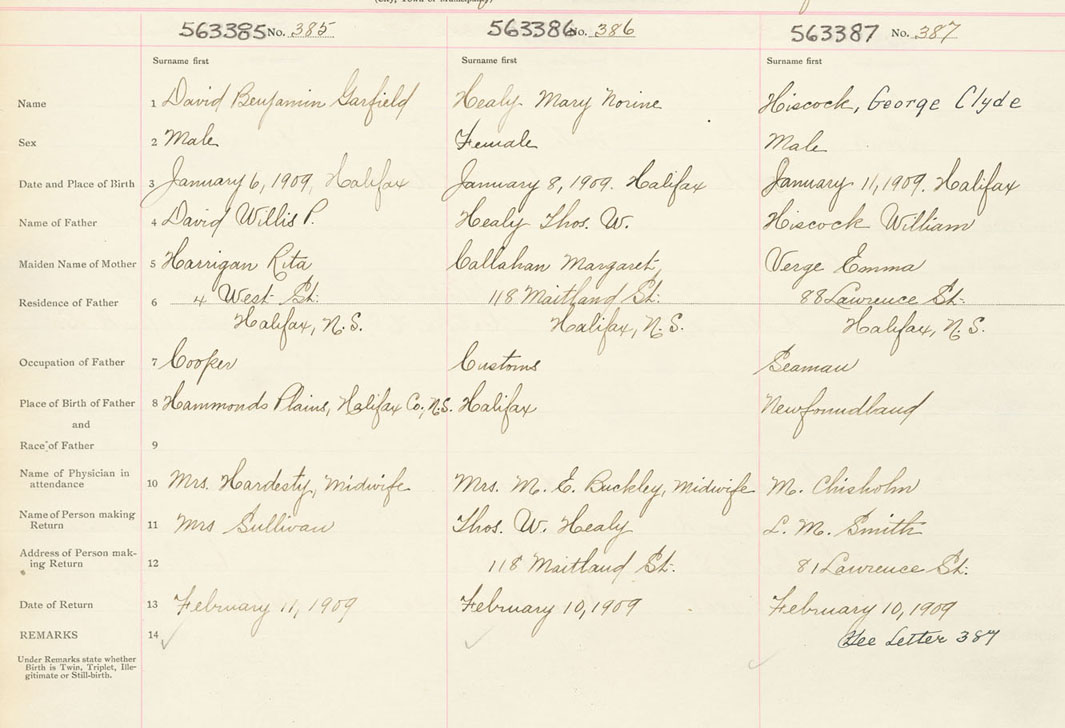 563385 No. 385 563386 No. 386 563387 No. 387
Surname first Surname first Surname first
Name 1 David Benjamin Garfield Healy Mary Norine Hiscock, George Clyde
Sex 2 Male Female Male
Date and Place of Birth 3 January 6, 1909, Halifax January 8, 1909. Halifax January 11, 1909. Halifax
Name of Father 4 David Willis P. Healy Thos. W. Hiscock William
Maiden Name of Mother 5 Harrigan Rita Callahan Margaret Verge Emma
Residence of Father 6 4 West St. 118 Maitland St. 88 Lawrence St.
Halifax, N.S. Halifax, N.S. Halifax, N.S.
Occupation of Father 7 Cooper Customs Seaman
Place of Birth of Father 8 Hammonds Plains, Halifax Co., N.S. Halifax Newfoundland
and
Race of Father 9
Name of Physician in
attendance 10 Mrs. Hardesty, Midwife Mrs. M. E. Buckley, Midwife M. Chisholm
Name of Person making
Return 11 Mrs Sullivan Thos. W. Healy L. M. Smith
Address of Person mak-
ing Return 12 118 Maitland St. 81 Lawrence St.
Date of Return 13 February 11, 1909 February 10, 1909 February 10, 1909
REMARKS 14 See Letter 387
Under Remarks state whether
Birth is Twin, Triplet, Ille-
gitimate or Still-birth.